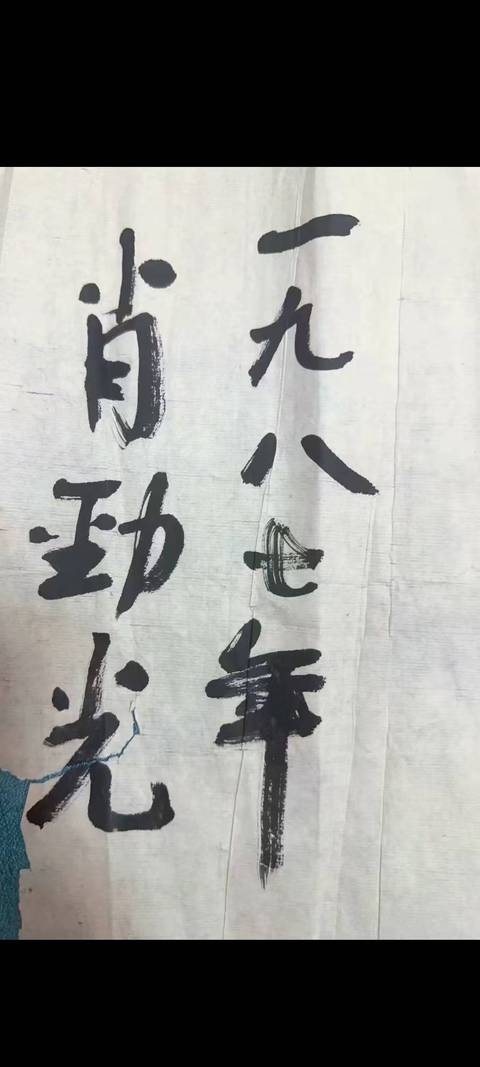 一九八七年
肖劲光